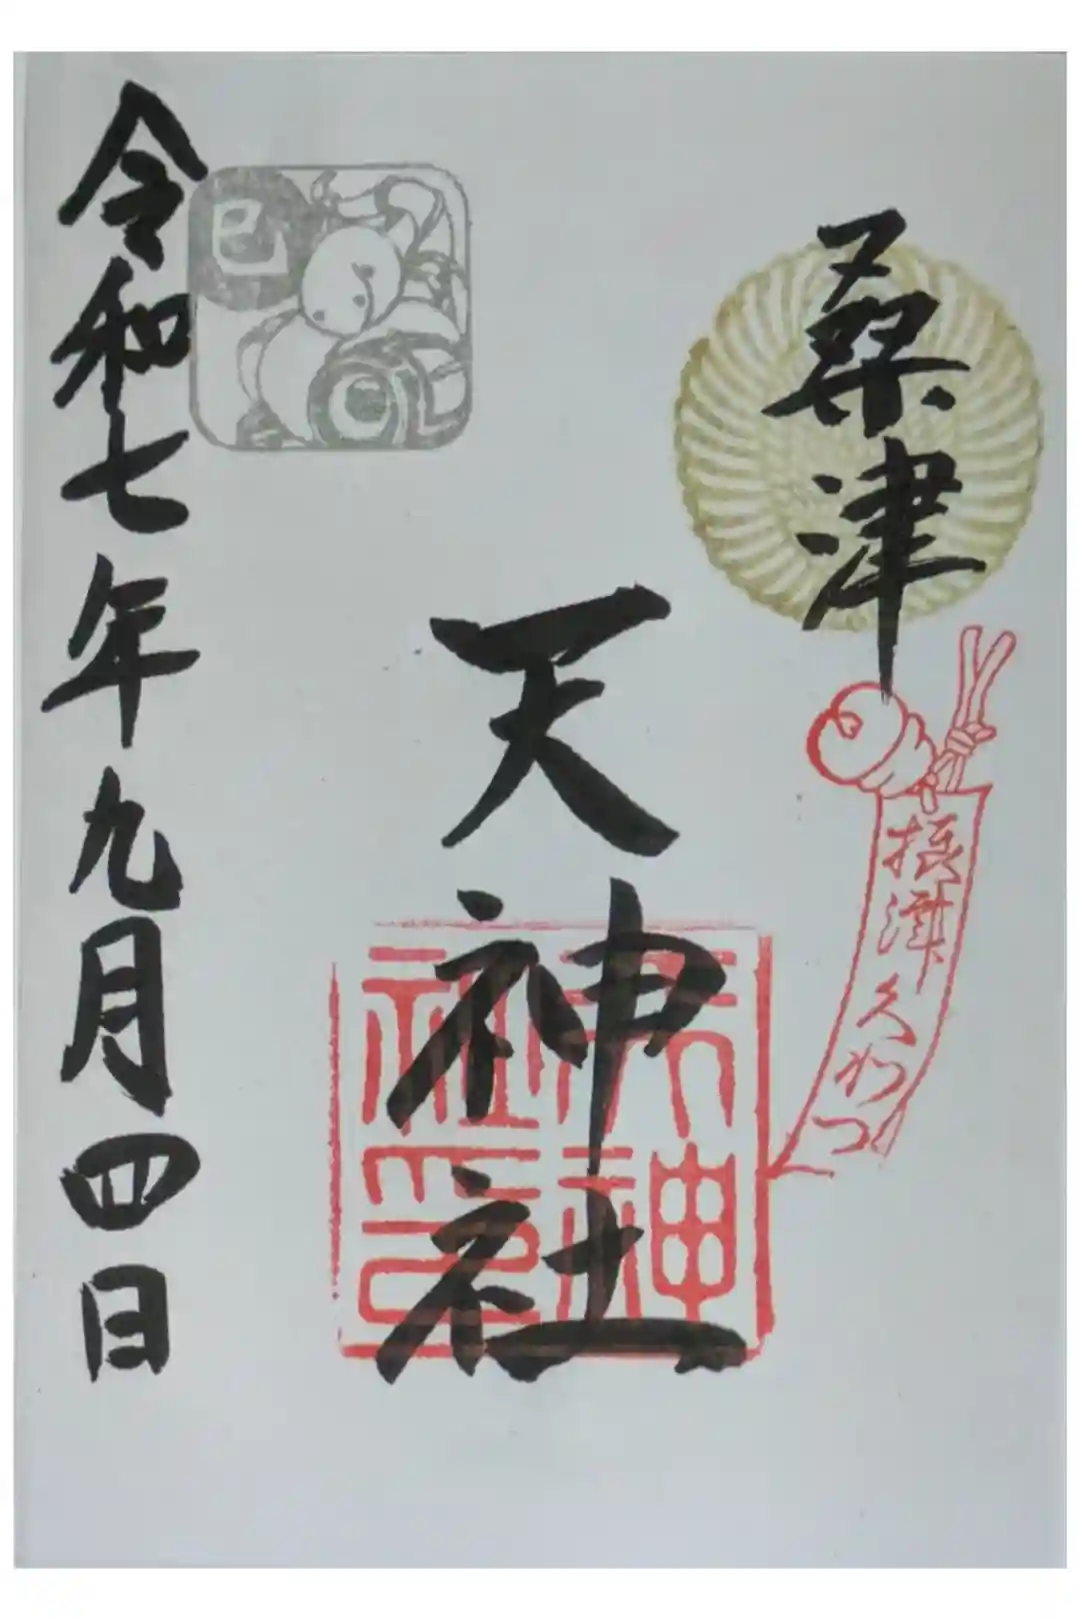 桑津
摂津くわつ
天神社
天神社印
巳
令和七年九月四日